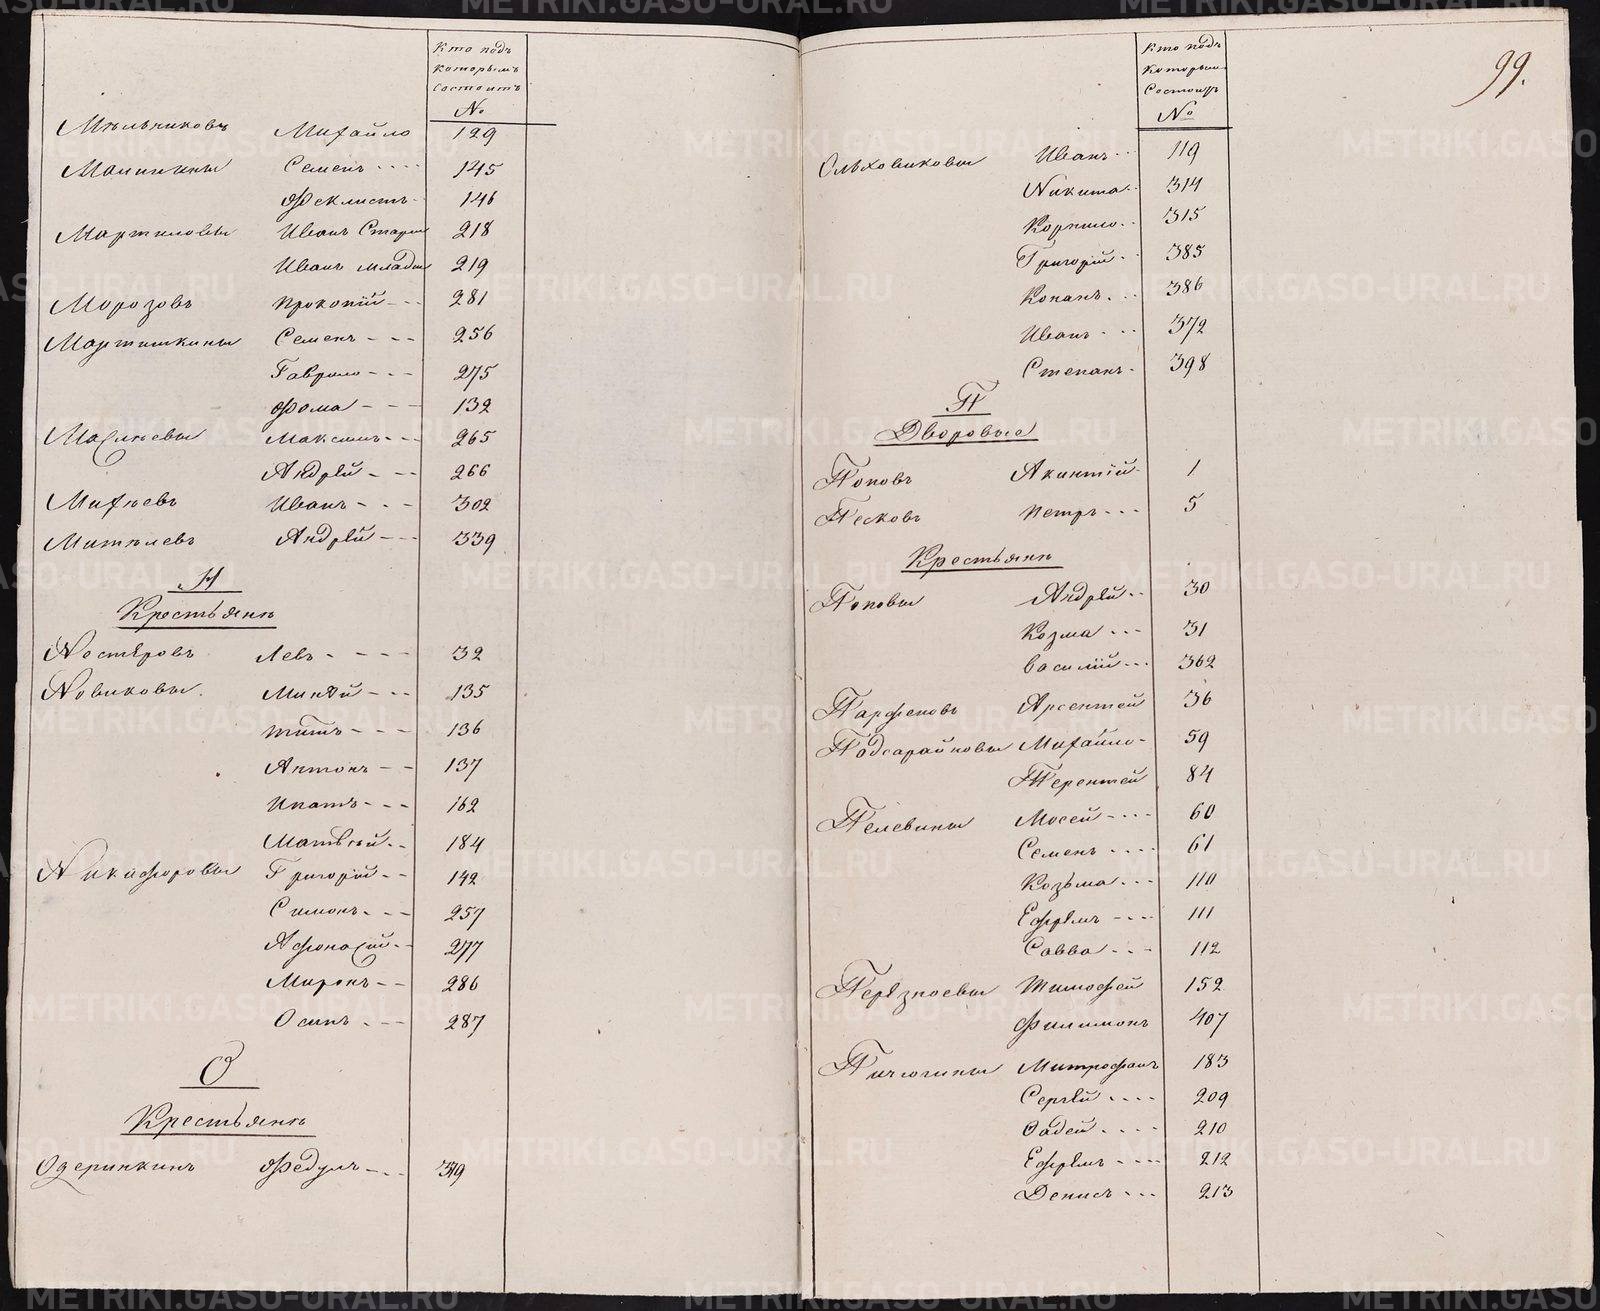 Кто подъ
которымъ
состоитъ
№
Мѣльниковъ Михайло 129
Манинины Семенъ 145
Феклистъ 146
Мартиловы Иванъ Старш 218
Иванъ младш 219
Морозовъ Прокопій 281
Мартишкины Семенъ 256
Гаврило 275
Фома 132
Маслѣевы Максимъ 265
Андрей 266
Михѣевъ Иванъ 302
Митѣлевъ Андрей 339
Н
Крестьянѣ
Нестеровъ Левъ 32
Новиковы Минѣй 135
Титъ 136
Антонъ 137
Ипатъ 162
Матвѣй 184
Никифоровы Григорій 142
Симонъ 257
Афонасій 277
Миронъ 286
Осипъ 287
О
Крестьянѣ
Одеринкинъ Федулъ 349
99.
Кто подъ
которым
состоитъ
№
Ольховиковы Иванъ 119
Никита 314
Корнило 315
Григорій 385
Конанъ 386
Иванъ 372
Степанъ 398
П
Дворовые
Поповъ Акинтій 1
Песковъ Петръ 5
Крестьянѣ
Поповы Андрей 30
Козма 31
Василій 362
Парфеновъ Арсентей 36
Подсарайновы Михайло 59
Терентей 84
Пелевины Мосей 60
Семенъ 61
Козьма 110
Ефремъ 111
Савва 112
Перезноевы Тимофей 152
Филимонъ 407
Пичюгины Митрофанъ 183
Сергей 209
Фадей 210
Ефремъ 212
Денисъ 213
METRIKI.GASO-URAL.RU